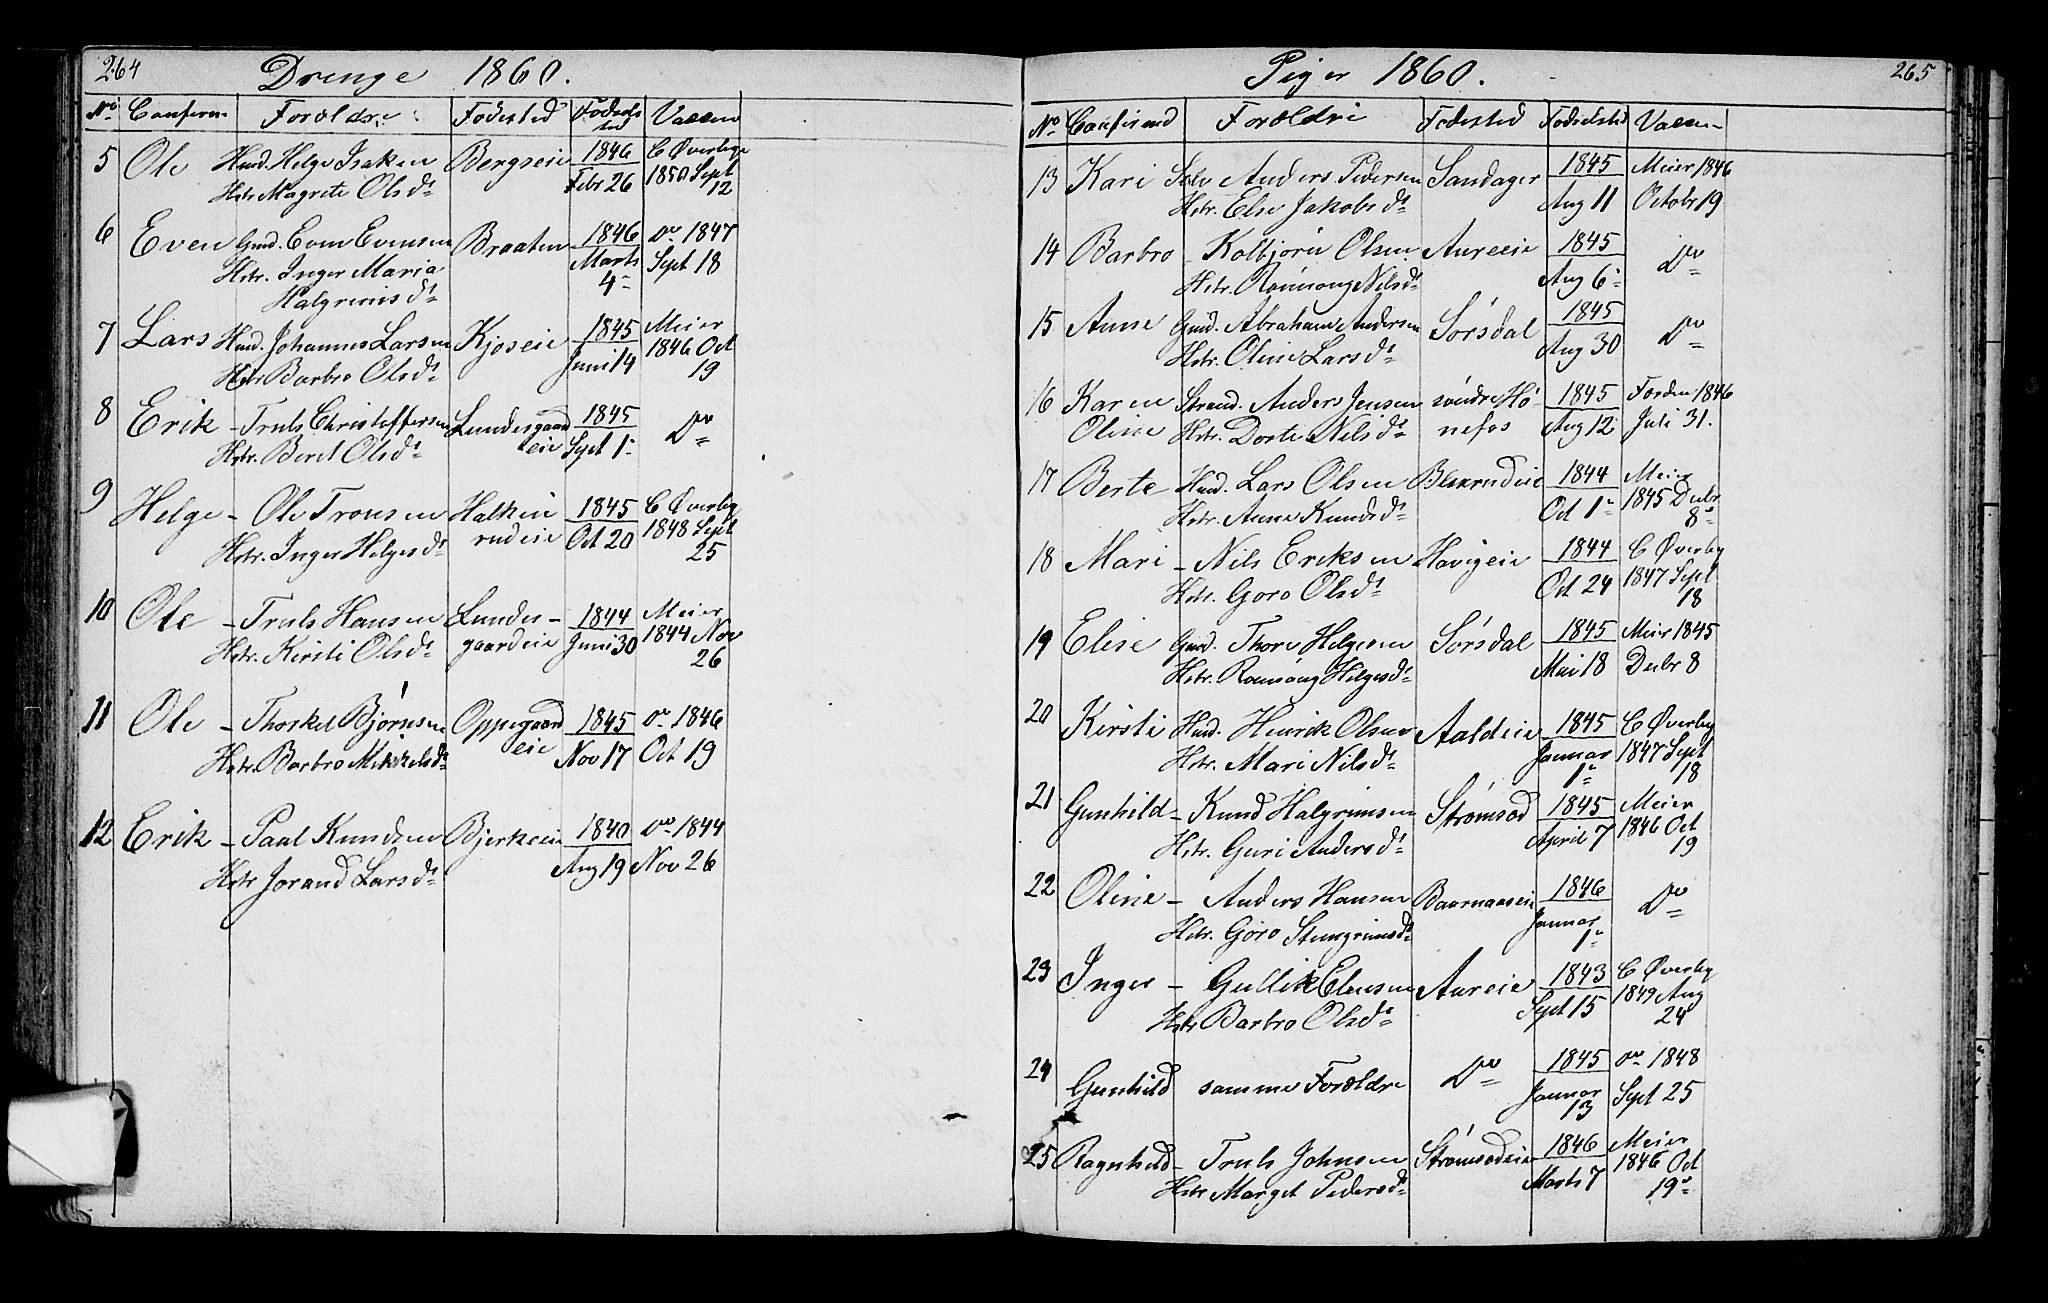 264
Drenge 1860.
No Conferm Forældre Fødested Fødsels Vaccin
tid
5 Ole Hmd. Helge Isaksen Bergseie 1846 C Øverbye
Hstr Magrete Olsdt Febr 26 1850 Sept
12
6 Even Gmd. Even Evensen Braaten 1846 Do 1847
Hstr. Inger Maria Marts Sept 18
Halgrimsdt 4
7 Lars Hmd. Johannes Larsen Kjoseie 1845 Meier
Hstr Barbro Olsdt Juni 14 1846 Oct
19
8 Erik - Truls Christoffersen Lundesgaard 1845 Do
Hstr. Beret Olsdt eie Sept 1
9 Helge - Ole Tronsen Halken 1845 C Øverby
Hstr. Inger Helgesdt rudeie Oct 20 1848 Sept
25
10 Ole - Truls Hansen Lundes- 1844 Meier
Hstr. Kirsti Olsdt gaardeie Juni 30 1844 Nov
26
11 Ole - Thorkel Bjørnsen Oppegaard 1845 Do 1846
Hstr. Barbro Mikkelsdt eie Nov 17 Oct 19
12 Erik - Paal Knudsen Bjerkeeie 1840 Do 1844
Hstr Jorand Larsdt Aug 19 Nov 26
265
Piger 1860.
No Confirmd Forældre Fødested Fødselstid Vaccin
13 Kari Selv Anders Pedersen Sandager 1845 Meier 1846
Hstr. Else Jakobsdt Aug 11 Octobr 19
14 Barbro - Kolbjørn Olsen Aureeie 1845 Do
Hstr. Rønnaug Nilsdt Aug 6
15 Anne Gmd. Abraham Andersen Sørsdal 1845 Do
Hstr. Oline Larsdt Aug 30
16 Karen Strand. Anders Jensen søndre Hø- 1845 Forden 1846
Oline Hstr. Dorte Nilsdt nefos Aug 12 Juli 31.
17 Berte Hmd. Lars Olsen 1844 Meier
Hstr. Anne Knudsdt Oct 1 1845 Decbr
8
18 Mari - Nils Eriksen Havigeie 1844 C Øverby
Hstr. Goro Olsdt Oct 24 1847 Sept
18
19 Elise Gmd. Thore Helgesen Sørsdal 1845 Meier 1845
Hstr. Rønnaug Helgesdt Mai 18 Decbr 8
20 Kirsti Hmd. Henrik Olsen Aaldeie 1845 C Øverby
Hstr. Mari Nilsdt Januar 1847 Sept
1 18
21 Gunhild - Knud Halgrimsen Strømsod 1845 Meier
Hstr. Guri Andersdt April 7 1846 Oct
19
22 Oline - Anders Hansen Baarnaaseie 1846 Do
Hstr. Goro Steengrimsdt Januar
1
23 Inger - Gullik Elensen Aureie 1843 C Øverby
Hstr Barbro Olsdt Sept 15 1849 Aug
24
24 Gunhild samme Forældre Do 1845 Do 1848
Januar Sept 25
13
25 Ragnhild - Truls Johnsen Strømsodeie 1846 Meier
Hstr Marget Pedersdt Marts 7 1846 Oct
19